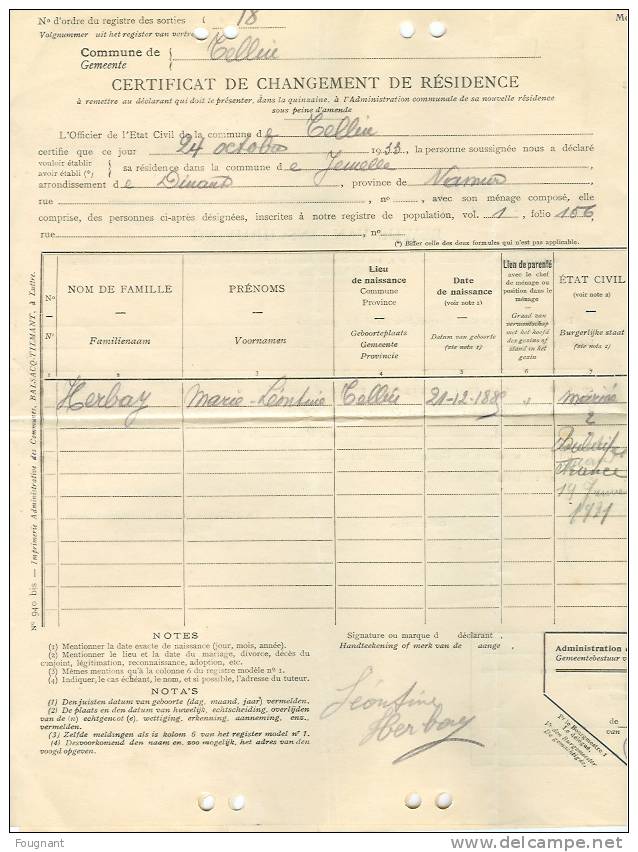 Nº d'ordre du registre des sorties 18
Volgnummer uit het register van vertre
Commune de Tellin
Gemeente
CERTIFICAT DE CHANGEMENT DE RÉSIDENCE
à remettre au déclarant qui doit le présenter, dans la quinzaine, à l'Administration communale de sa nouvelle résidence
sous peine d'amende
L'Officier de l'Etat Civil de la commune de Tellin
certifie que ce jour 24 octobre 1933, la personne soussignée nous a déclaré
vouloir établir
avoir établi (*)
sa résidence dans la commune de Jemelle
arrondissement de Dinant, province de Namur,
rue, nº, avec son ménage composé, elle
comprise, des personnes ci-après désignées, inscrites à notre registre de population, vol. 1, folio 156,
rue, nº
(*) Biffer celle des deux formules qui n'est pas applicable.
Nº
Nº
NOM DE FAMILLE
Familienaam
PRÉNOMS
Voornamen
Lieu
de naissance
Commune
Province
Geboorteplaats
Gemeente
Provincie
Date
de naissance
(voir note 1)
Datum van geboorte
(zie nota 1)
Lien de parenté
avec le chef
de ménage ou
position dans le
ménage
Graad van
verwantschap
met het hoofd
des gezins of
stand in het
gezin
ÉTAT CIVIL
(voir note 2)
Burgerlijke staat
(zie nota 2)
1 2 3 4 5 6 7
Herbay Marie-Léontine Tellin 21-12-1889 mariée
à
1931
Nº 940 bis — Imprimerie Administrative des Communes, BALSACQ-TILMANT, à Luttre.
NOTES
(1) Mentionner la date exacte de naissance (jour, mois, année).
(2) Mentionner le lieu et la date du mariage, divorce, décès du
conjoint, légitimation, reconnaissance, adoption, etc.
(3) Mêmes mentions qu'à la colonne 6 du registre modèle nº 1.
(4) Indiquer, le cas échéant, le nom, et si possible, l'adresse du tuteur.
NOTA'S
(1) Den juisten datum van geboorte (dag, maand, jaar) vermelden.
(2) De plaats en den datum van huwelijk, echtscheiding, overlijden
van de (n) echtgenoot (e), wettiging, erkenning, aanneming, enz.,
vermelden.
(3) Zelfde meldingen als in kolom 6 van het register model nº 1.
(4) Desvoorkomend den naam en, zoo mogelijk, het adres van den
voogd opgeven.
Signature ou marque d déclarant
Handteekening of merk van de aange
Léontine
Herbay
Administration
Gemeentebestuur v
du
van
Pr le Bourgmestre :
Le délégué,
Vr den Burgemeester
De gemachtigde,
Fougnant
delcampe.net